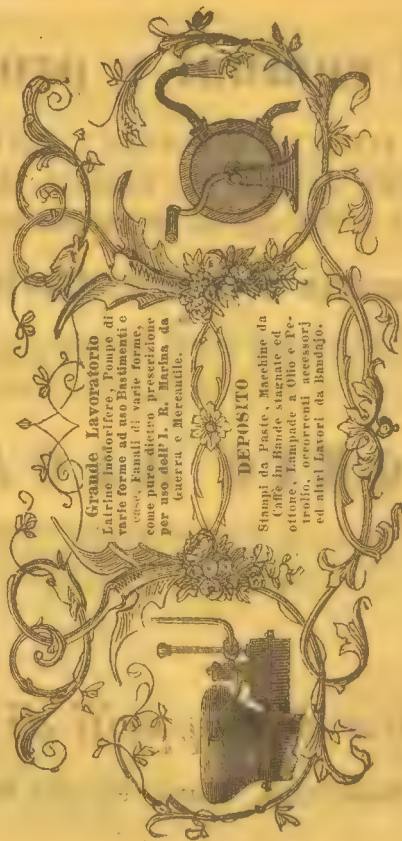 Grande Lavoratorio
Latrine inodorifere, Pompe di
varie forme ad uso Bastimenti e
case, Fanali di varie forme,
come pure dietro prescrizione
per uso dell' I. R. Marina da
Guerra e Mercantile.
DEPOSITO
Stampi da Paste, Macchine da
Caffè in Bande stagnate ed
ottone, Lampade a Olio e Pe-
trolio, occorrenti accessorj
ed altri Lavori da Bandajo.